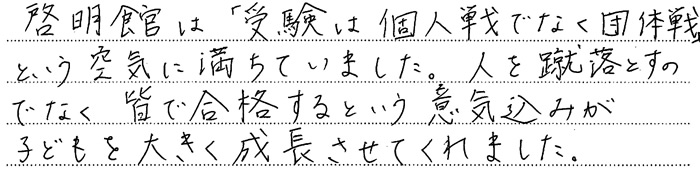 啓明館は「受験は個人戦でなく団体戦」
という空気に満ちていました。人を蹴落とすの
でなく皆で合格するという意気込みが
子どもを大きく成長させてくれました。